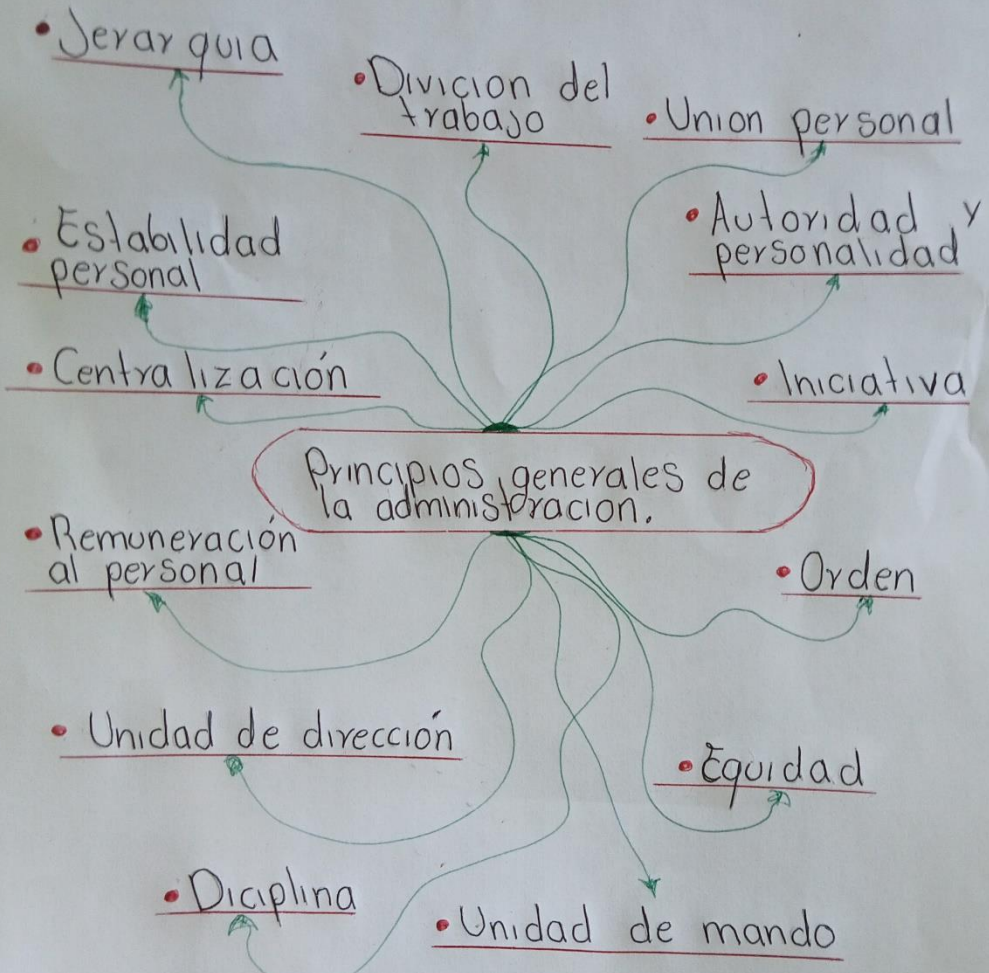 • Jerarquia
• Divicion del
trabajo
• Union personal
• Autoridad y
personalidad
• Estabilidad
personal
• Centralización
• Iniciativa
Principios generales de
la administoracion.
• Remuneración
al personal
• Orden
• Unidad de dirección
• Equidad
• Diciplina
• Unidad de mando